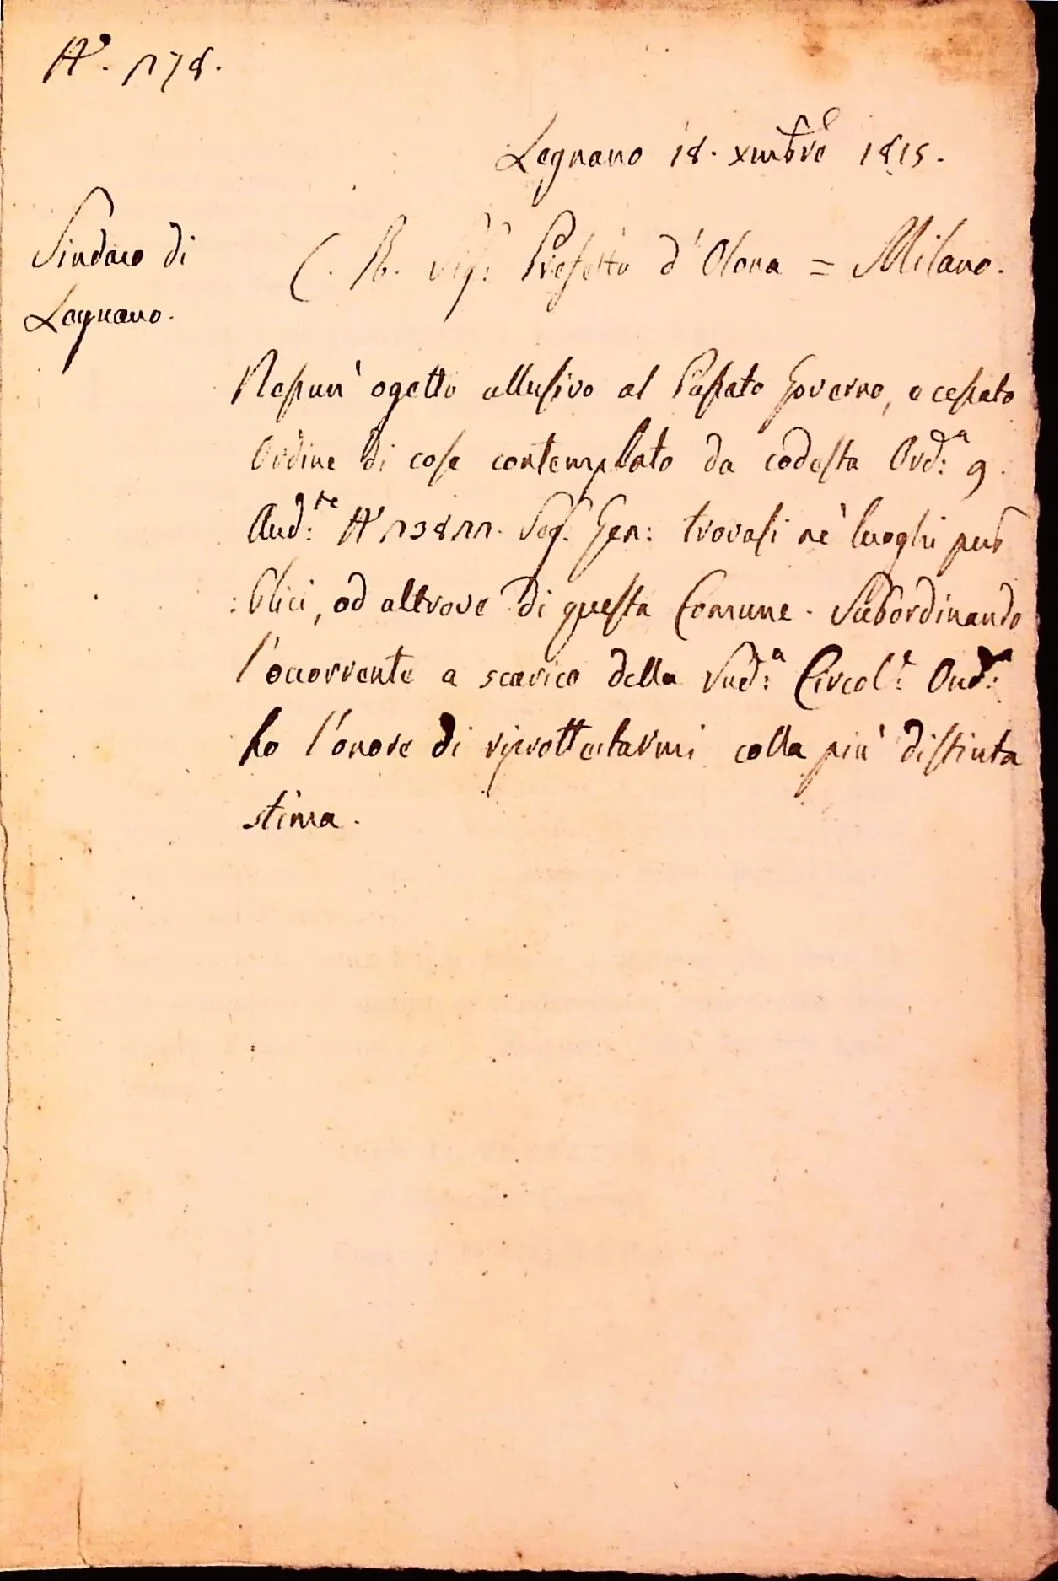 N.° 1178.
Legnano 18. xmbre 1815.
Sindaco di
Legnano.
C. R. Prefetto d'Olona = Milano.
Nessun' ogetto allusivo al Passato Governo, e cessato
Ordine di cose contemplato da codesta Ord.ª 9.
And.te N.° 13811. Seg. Gen: trovasi nè luoghi pub
:blici, od altrove di questa Comune. Subordinando
l'occorrente a scarico della Sud.ª Circol.e Ord.ª
ho l'onore di riprottestarmi colla più distinta
stima.